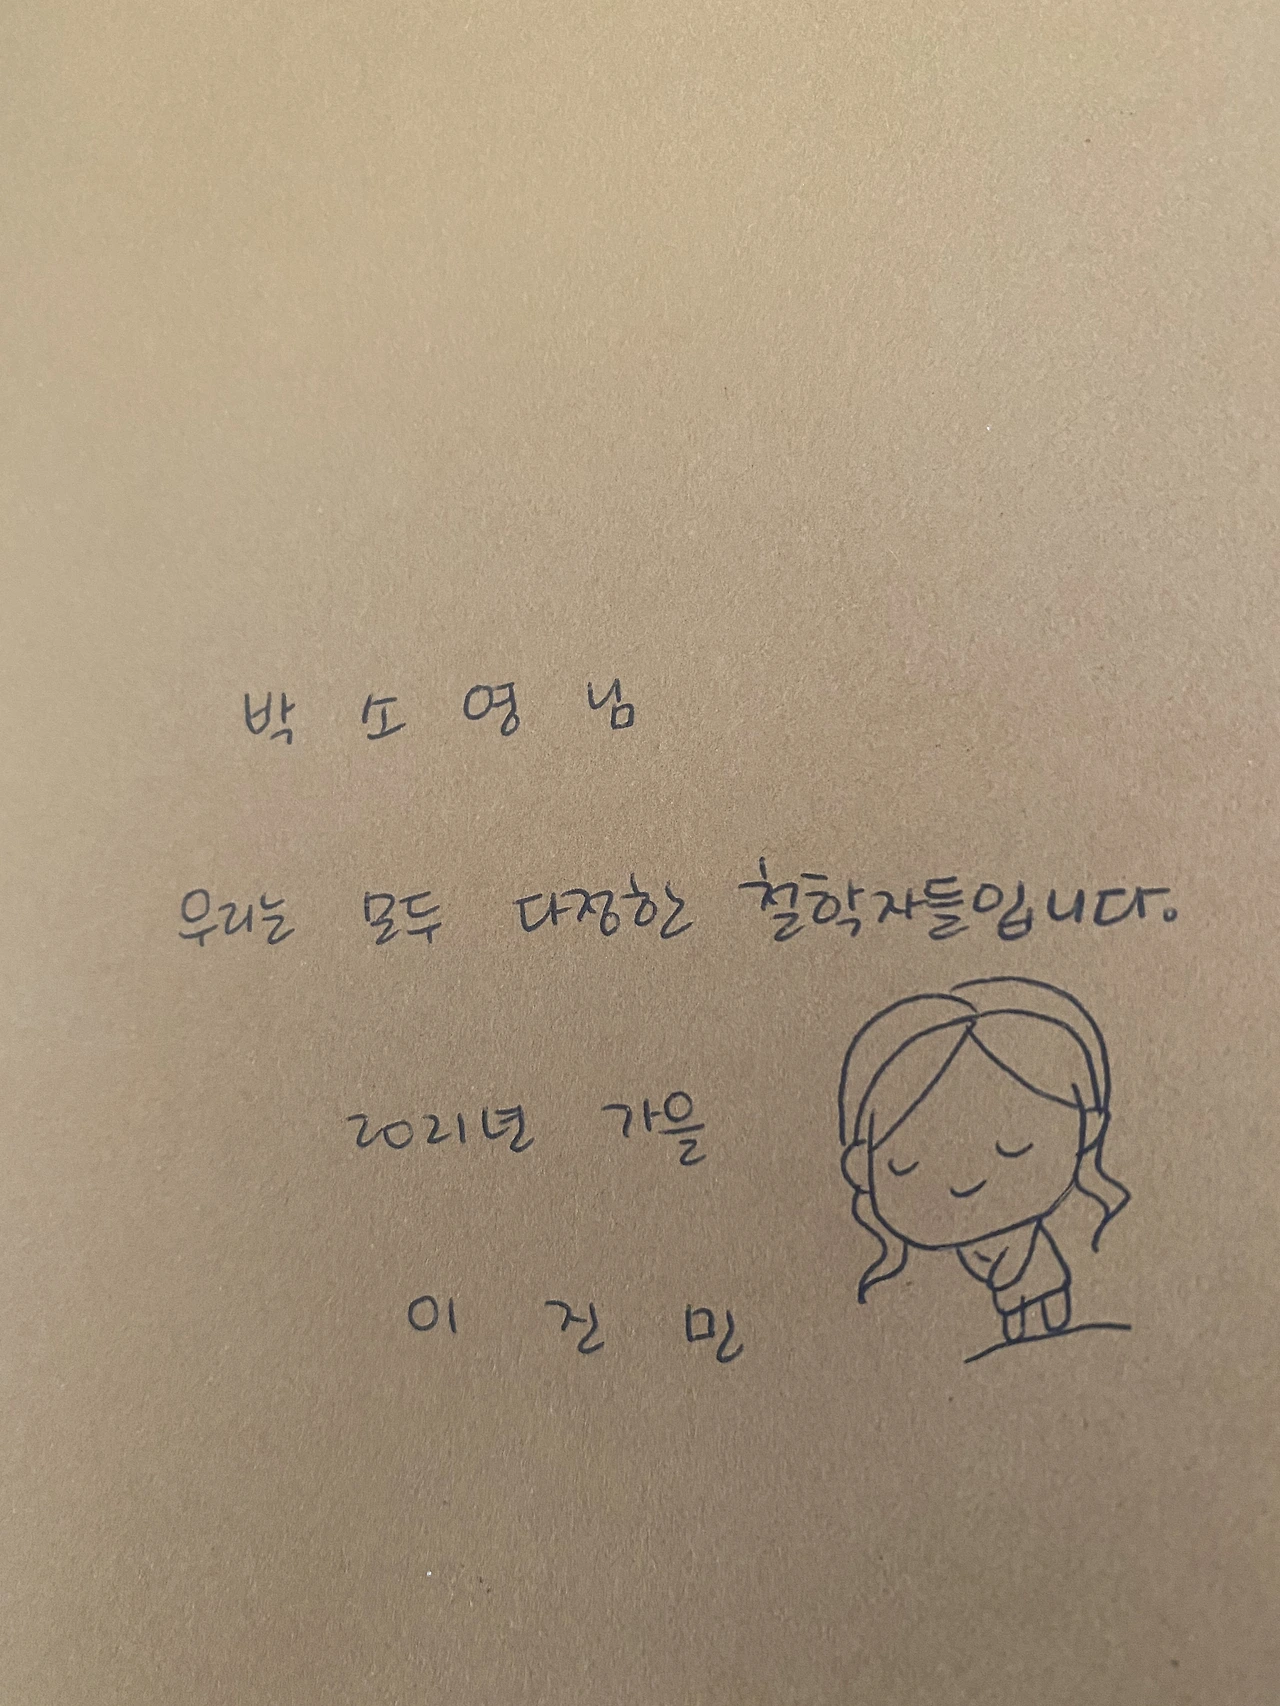 박 소 영 님
우리는 모두 다정한 철학자들입니다.
2021년 가을
이 진 민